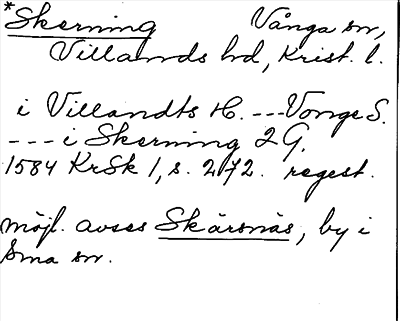 *Skerning Vånga sn,
Villands hd, Krist. l.
i Villandts H. --- Vonge S.
--- i Skerning 2 G.
1584 KrSk 1, s. 272. regest.
möjl. avses Skärsnäs, by i
sma sn.